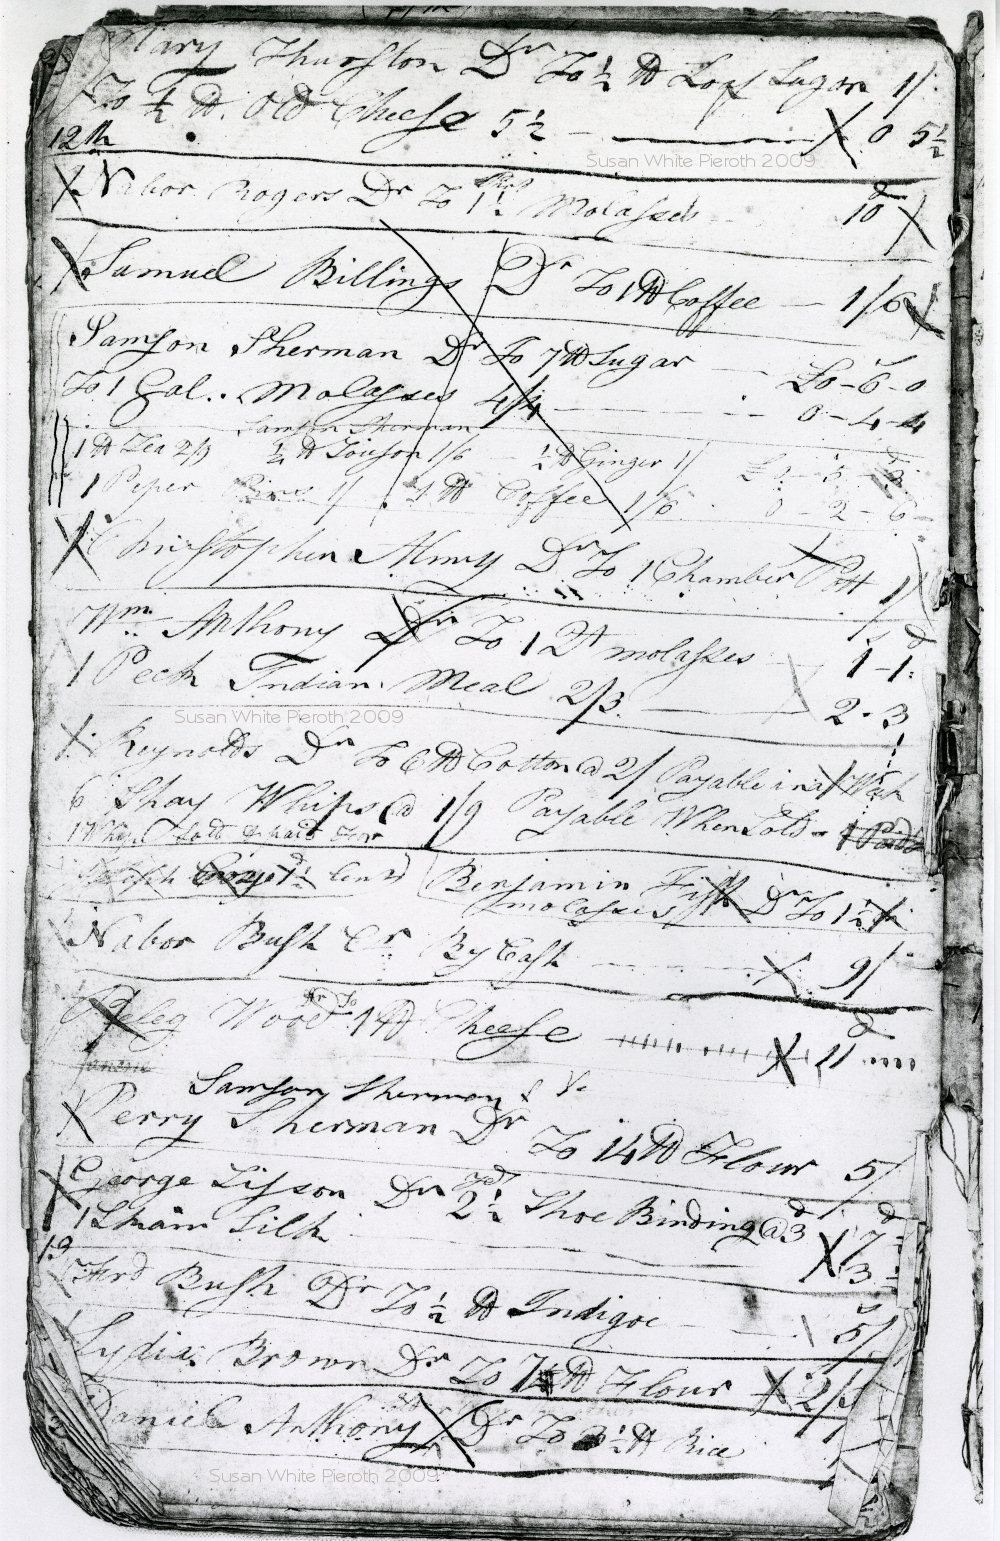 Mary Thurston Dr To ½ ℔ Loaf Sugar 1/
To ½ ℔. Old Cheese 5½ — 0 5½
12th
Susan White Pieroth 2009
Nabor Rogers Dr To 1½ Molasses 10d
Samuel Billings Dr To 1 ℔ Coffee — 1/6
Samson Sherman Dr To 7 ℔ Sugar — £0-6-0
To 1 Gal.. Molasses 4/4 — 0-4-4
Samson Sherman
1 ℔ Tea 2/3 ½ ℔ 1/6 — ½ ℔ Ginger 1/
1 Paper Pins 1/ 1 ℔ Coffee 1/6 0-2-6
Christopher Almy Dr To 1 Chamber Pott 1/
Wm Anthony Dr To 1 Qt molasses 1-1
1 Peck Indian Meal 2/3 — 2-3
Susan White Pieroth 2009
Reynolds Dr To 6 ℔ Cotton @ 2/ Payable in a Week
6 Shay Whips @ 1/9 Payable When Sold
Benjamin Fish Dr To 1½
molasses
Nabor Bush Cr By Cash 9/
Peleg Wood Dr To 1 ℔ Cheese 11d
Samson Sherman
Perry Sherman Dr To 14 ℔ Flour 5/
George Sisson Dr 2½ Yds Shoe Binding @ 3d 7d
1 Skain Silk 3
19
Bush Dr To ½ ℔ Indigoe — 5/
Lydia Brown Dr To 7 ℔ Flour 2/
Daniel Anthony Dr To 3½ ℔ Rice
Susan White Pieroth 2009